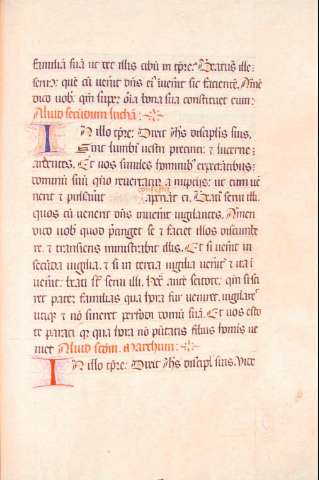 familiā suā ut det illis cibū in tp̄re. Beatus ille
seruꝰ quē cū uen̄it dn̄s eiꝰ inuen̄it sic facientē. Amē
dico uob̄ qm̄ super oīa bona sua constituet eum:
Aliud secūdum lucham:
In illo tp̄re: Dixit yh̄s discipl̄is suis.
Sint lumbi uestri precincti: et lucerne
ardentes. Et uos similes hominibꝫ expectantibus
dominū suū qn̄o reuertatur a nuptijs: ut cum ue
nerit et pulsauit aperiāt ei. Beati serui illi
quos cū uenerit dn̄s inuen̄it uigilantes. Amen
dico uob̄ quod p̄cinget se et faciet illos discumbe
re. et transiens ministrabit illis. Et si uen̄it in
secūda uigilia. et si in tercia uigilia uen̄it et ita in
uen̄it: beati sūt serui illi. Hoc autē scitote: qm̄ si sci
ret pater familias qua hora fur ueniret. uigilaret
utiqꝫ et nō sineret perfodi domū suā. Et uos esto
te parati qꝛ qua hora nō putatis filius hominis ue
niet Aliud scd̄m. Matheum:
In illo tp̄re: Dixit yh̄s discipl̄ suis. Vice